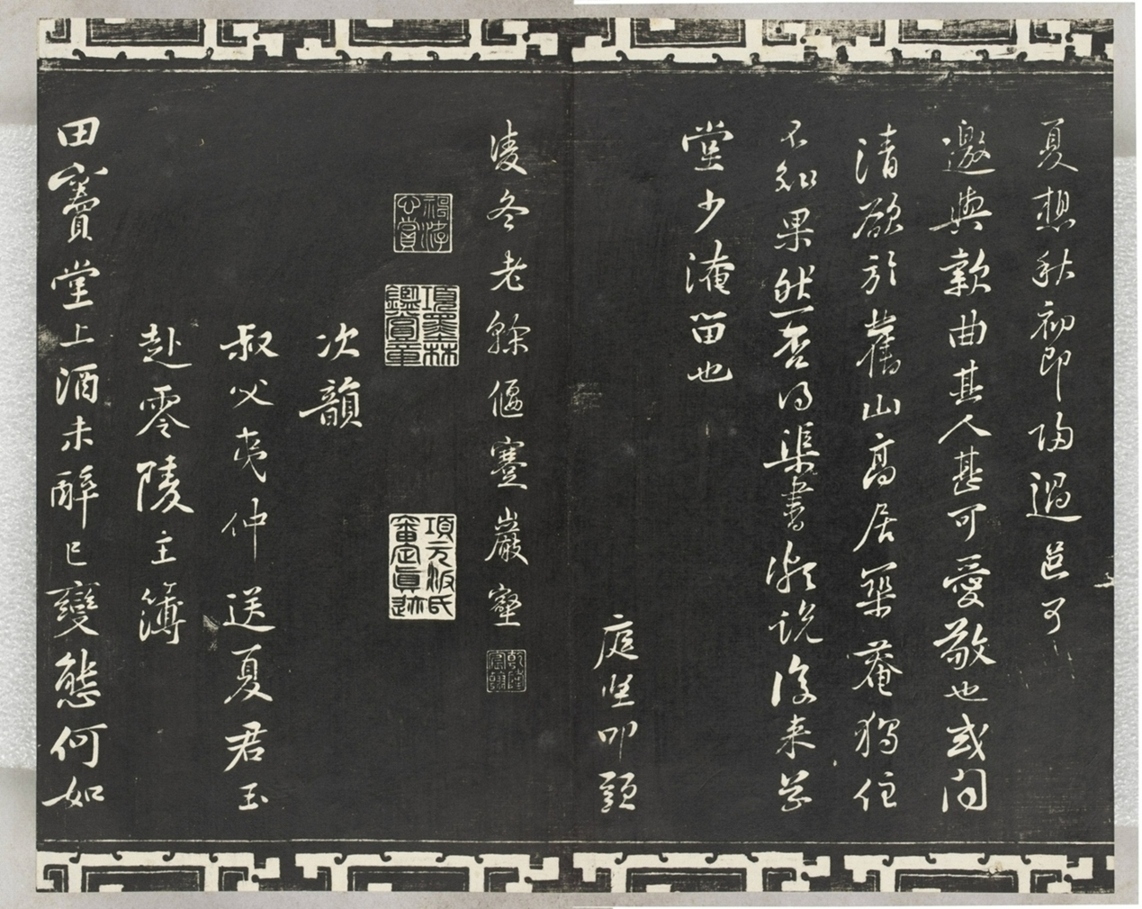 夏想秋初即歸過邑可
邀與款曲其人甚可愛敬也或聞
清欲於舊山高居築菴獨住
不知果然否得渠書
說後來
堂少淹留也
庭堅叩頭
凌冬老榦偃蹇巖壑
乾隆宸翰
神游心賞
項墨林鑑賞章
項元汴氏審定真跡
次韻
叔父夷仲送夏君玉
赴零陵主簿
田竇堂上酒未醉已變態何如